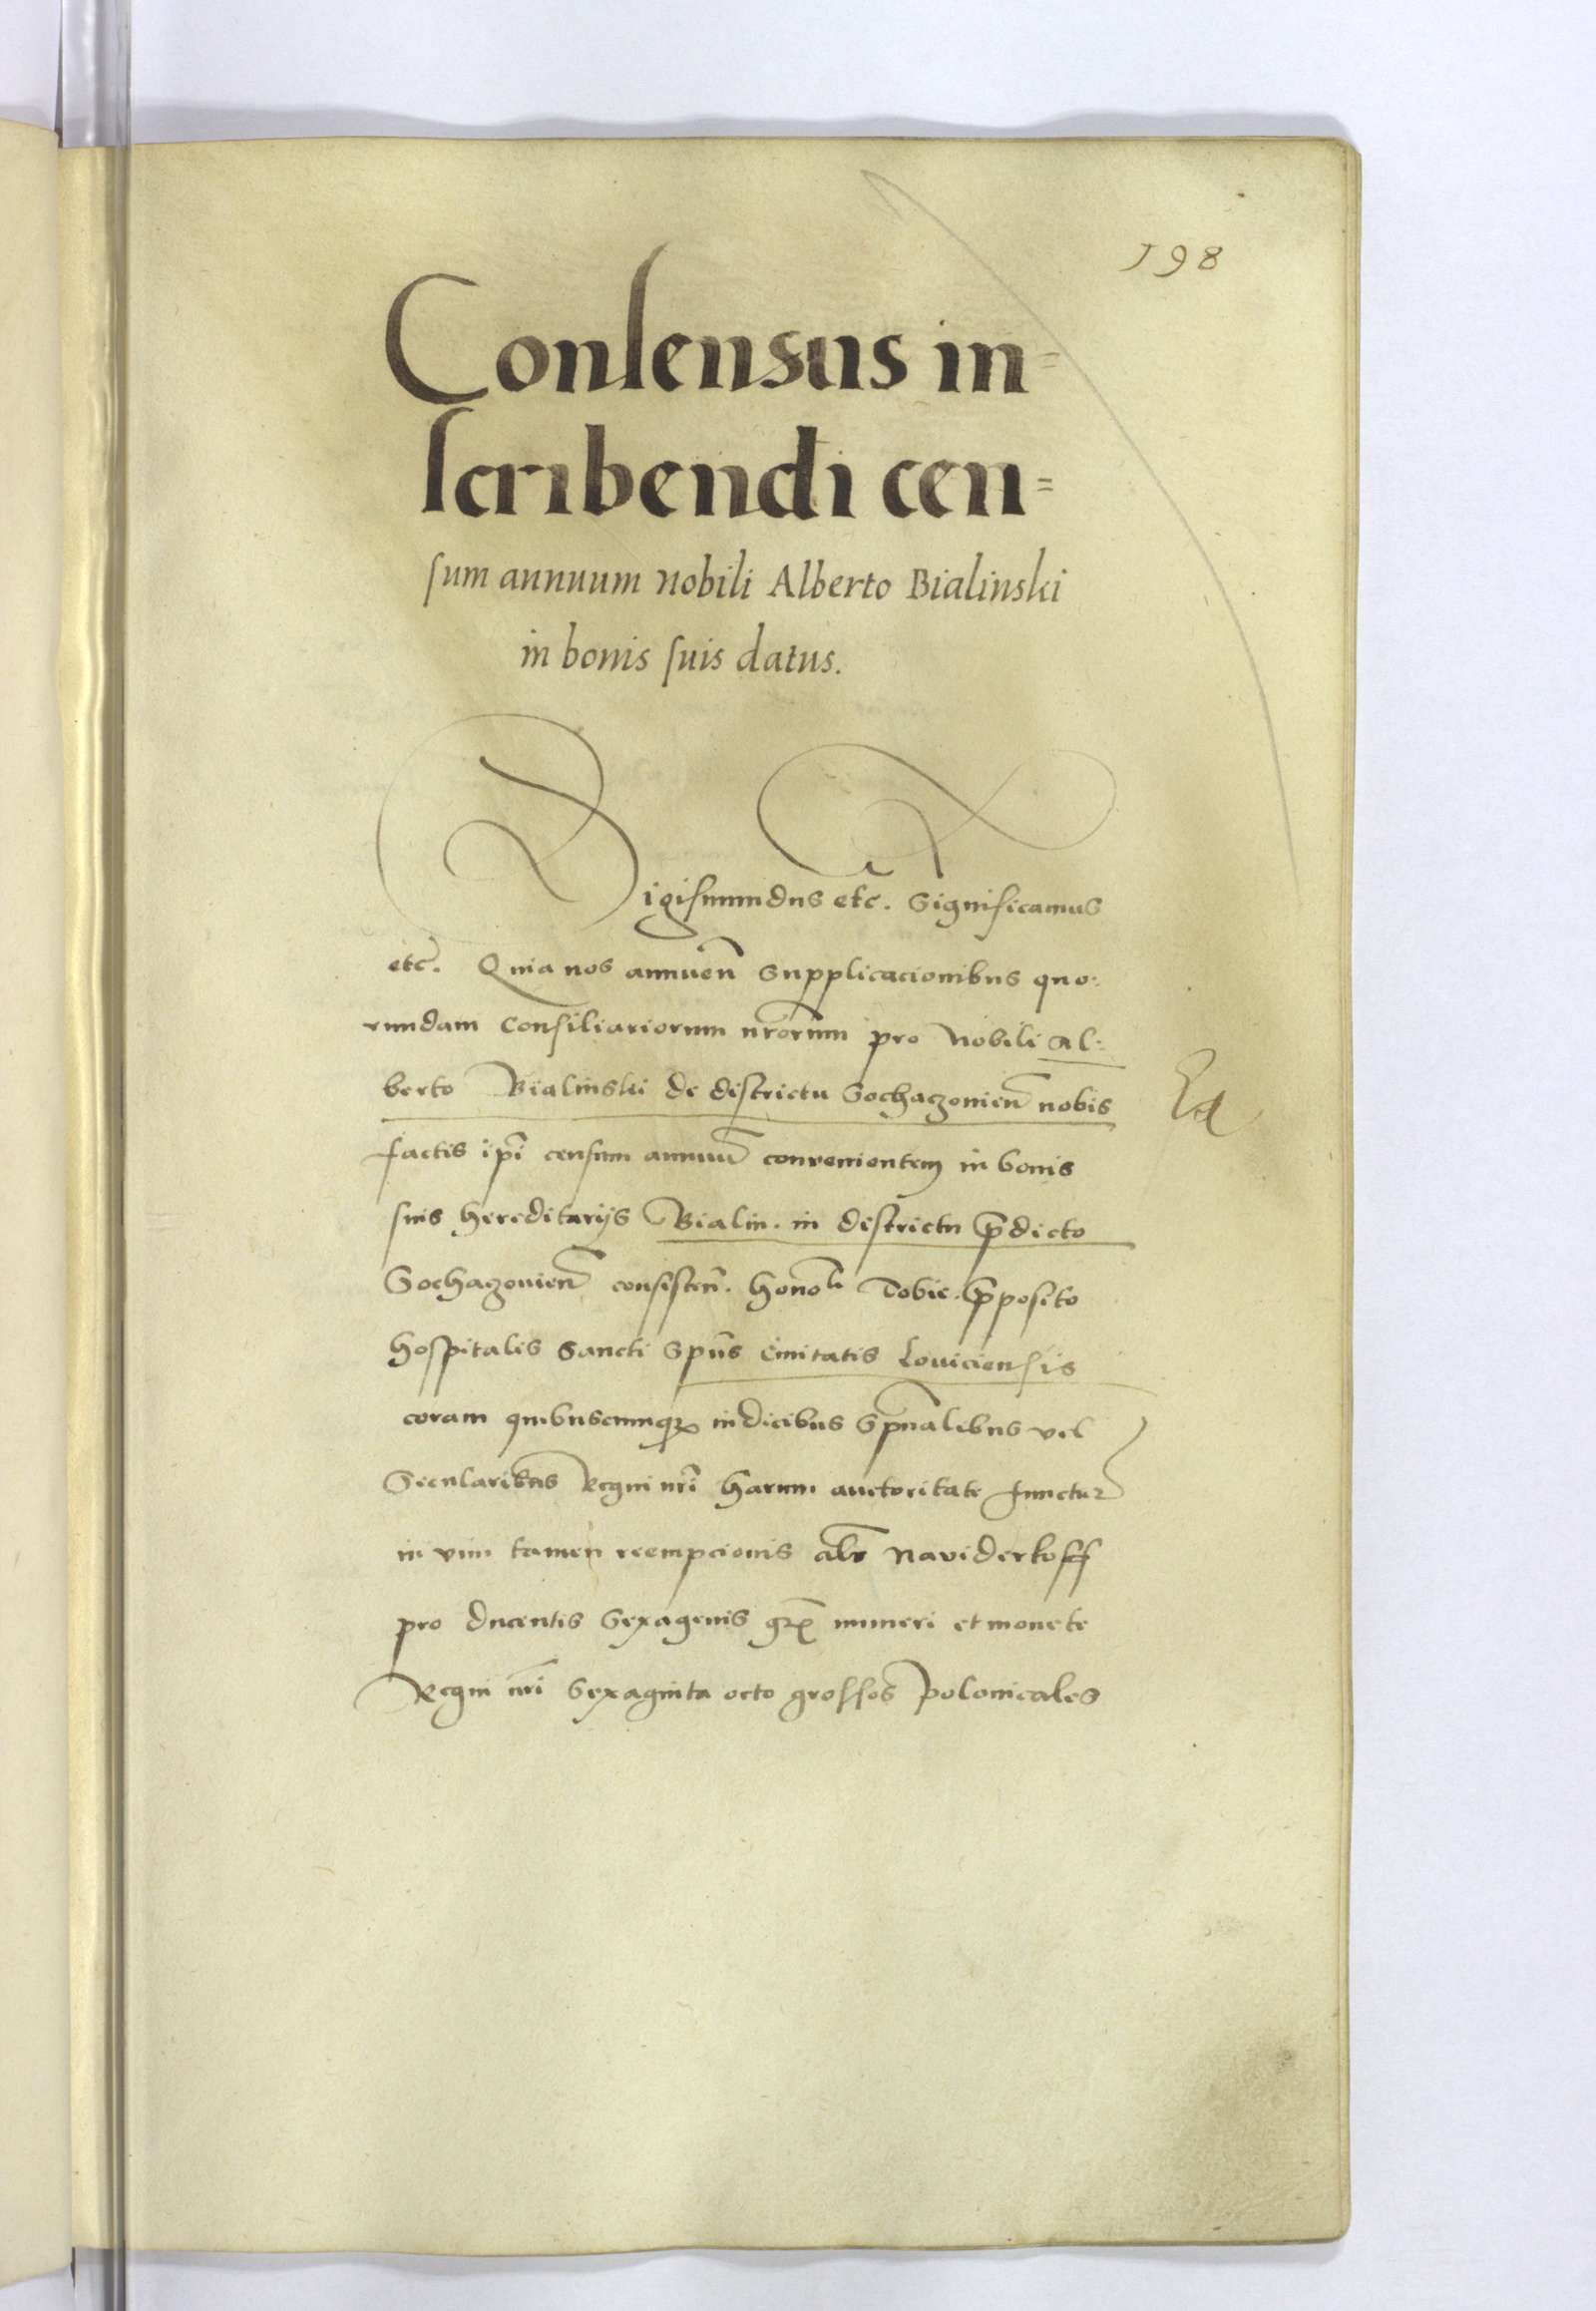 198
Consensus in=
scribendi cen=
sum annuum nobili Alberto Bialinski
in bonis suis datus.
Sigismundus etc. Significamus
etc. Quia nos annuen̄ supplicacionibus quo:
rundam consiliariorum nr̄orum pro Nobili Al:
berto Bialinski de districtu Sochaczouien̄ nobis
factis ip̄i censum annuū convenientem in bonis
suis hereditarijs Bialin. in districtu p̄dicto
Sochaczouien̄ consisten̄. hono^li Tobie p̄posito
hospitalis Sancti Sp̄us Ciuitatis Louiciensis
coram quibuscumq iudicibus Sp̄ualibus vel
Secularibus Regni nr̄i harum auctoritate
in vim tamen reempcionis al̄s Naviderkoff
pro ducentis Sexagenis numeri et monete
Regni nr̄i Sexaginta octo grossos polonicales